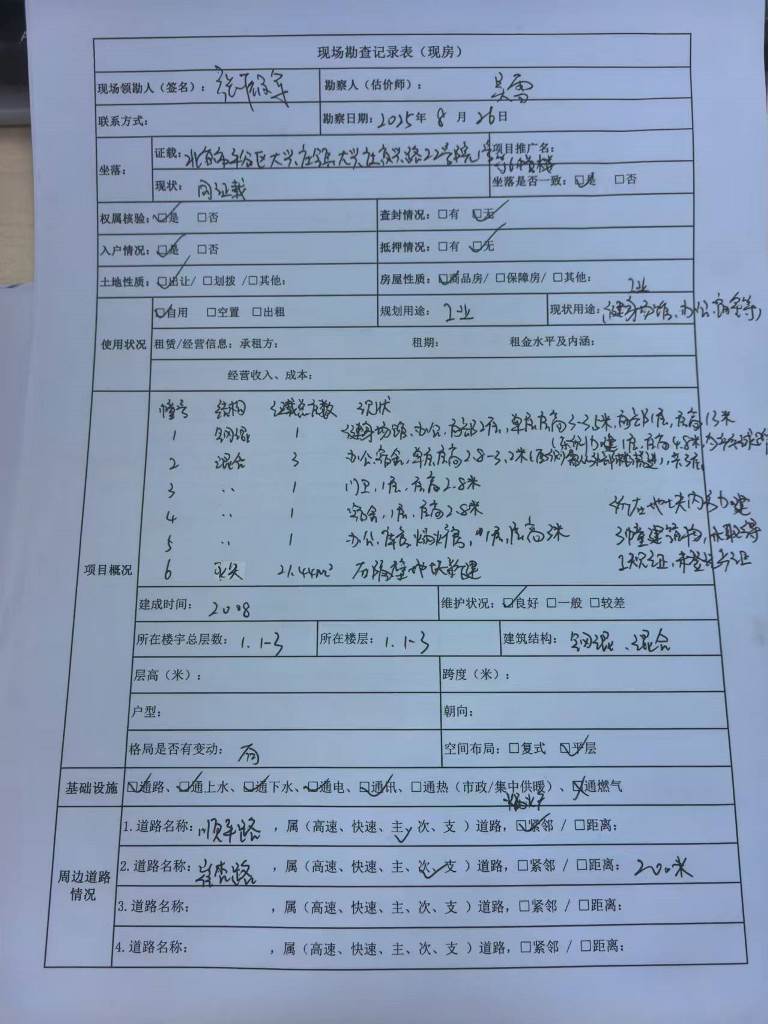 现场勘查记录表（现房）
现场领勘人（签名）： 勘察人（估价师）：吴雷
联系方式： 勘察日期：2025年 8 月 26日
坐落： 证载：北京市平谷区大兴庄镇大兴庄 兴路22号院 项目推广名：
现状：同证载 坐落是否一致：☑是 □否
权属核验：☑是 □否 查封情况：□有 ☑无
入户情况：☑是 □否 抵押情况：□有 ☑无
土地性质：☑出让/ □划拨 /□其他： 房屋性质：☑商品房/ □保障房/ □其他：
使用状况 ☑自用 □空置 □出租 规划用途：工业 现状用途：工业（健身场馆、办公、宿舍等）
租赁/经营信息：承租方： 租期： 租金水平及内涵：
经营收入、成本：
项目概况
幢号 结构 证载总层数 现状
1 钢混 1 健身场馆、办公，局部2层，单层层高3-3.5米，局部1层，层高13米
1层，层高4.8米
2 混合 3 办公宿舍，单层层高2.8-3.2米
3 〃 1 门卫，1层，层高2.8米
4 〃 1 宿舍，1层，层高2.8米
5 〃 1 办公、库房、锅炉房，1层，层高3米
6 21.44m²
所在地块内另加建
3幢建筑物，未取得
工规证，未登记房证
建成时间：2008 维护状况：☑良好 □一般 □较差
所在楼宇总层数：1.1-3 所在楼层：1.1-3 建筑结构：钢混、混合
层高（米）： 跨度（米）：
户型： 朝向：
格局是否有变动：有 空间布局：□复式 ☑平层
基础设施 ☑通路、☑通上水、☑通下水、☑通电、☑通讯、□通热（市政/集中供暖）、☒通燃气
锅炉
周边道路情况
1.道路名称：顺平路，属（高速、快速、主✓、次、支 ）道路，☑紧邻 / □距离：
2.道路名称：崔杏路，属（高速、快速、主、次✓、支 ）道路，□紧邻 / □距离：200米
3.道路名称： ，属（高速、快速、主、次、支 ）道路，□紧邻 / □距离：
4.道路名称： ，属（高速、快速、主、次、支 ）道路，□紧邻 / □距离：